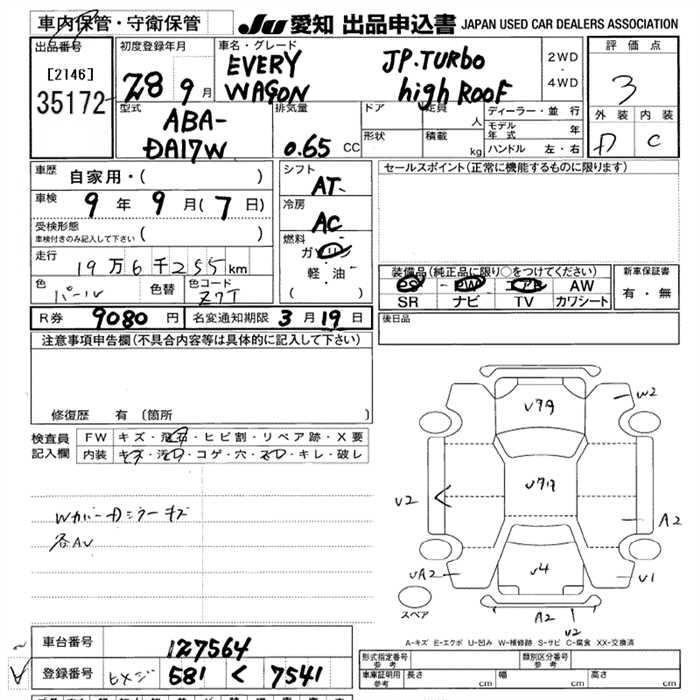 車内保管・守衛保管 JU 愛知 出品申込書 JAPAN USED CAR DEALERS ASSOCIATION
出品番号 初度登録年月 車名・グレード 評価点
[2146] 28 9月 EVERY JP.TURBO 2WD・4WD 3
35172 WAGON high ROOF
型式 排気量 ドア 定員 人 ディーラー・並行 外装 内装
ABA- モデル年式 年 D C
DA17W 0.65 CC 形状 積載 kg ハンドル 左・右
車歴 自家用・( ) シフト セールスポイント(正常に機能するものに限ります)
車検 9年9月(7日) AT
受検形態 ( ) 冷房
車検付きのみ記入して下さい AC
走行 燃料
19万6千255km ガソリン
色 パール 色替 色コード Z7T 軽・油
( )
装備品(純正品に限り○をつけてください) 新車保証書
PS PW エアB AW 有・無
SR ナビ TV カワシート
R券 9080円 名変通知期限 3月19日 後日品
注意事項申告欄(不具合内容等は具体的に記入して下さい)
修復歴 有 (箇所 )
検査員 FW キズ・飛石・ヒビ割・リペア跡・X要
記入欄 内装 キズ・汚れ・コゲ・穴・スレ・キレ・破レ
W2
V2
A2
UA2
U4
U1
A2
V2
スペア
A-キズ E-エクボ U-凹み W-補修跡 S-サビ C-腐食 XX-交換済
車台番号 127564
登録番号 ヒメジ 581 く 7541
形式指定番号 参考 類別区分番号 参考
車庫証明用 参考 長さ cm 幅 cm 高さ cm